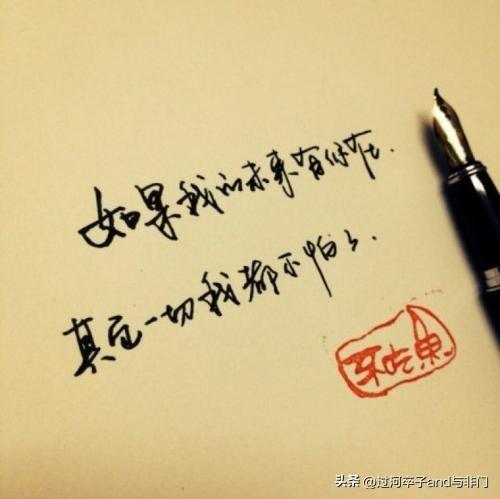 如果我的未来有你在.
其它一切我都不怕了.
不吃鱼
头条 @过河卒子and与非门